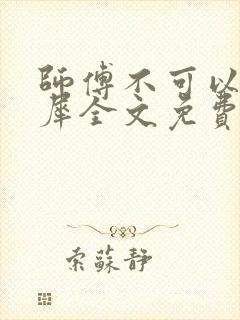 師傅不可以
犀全文免費
索蘇靜